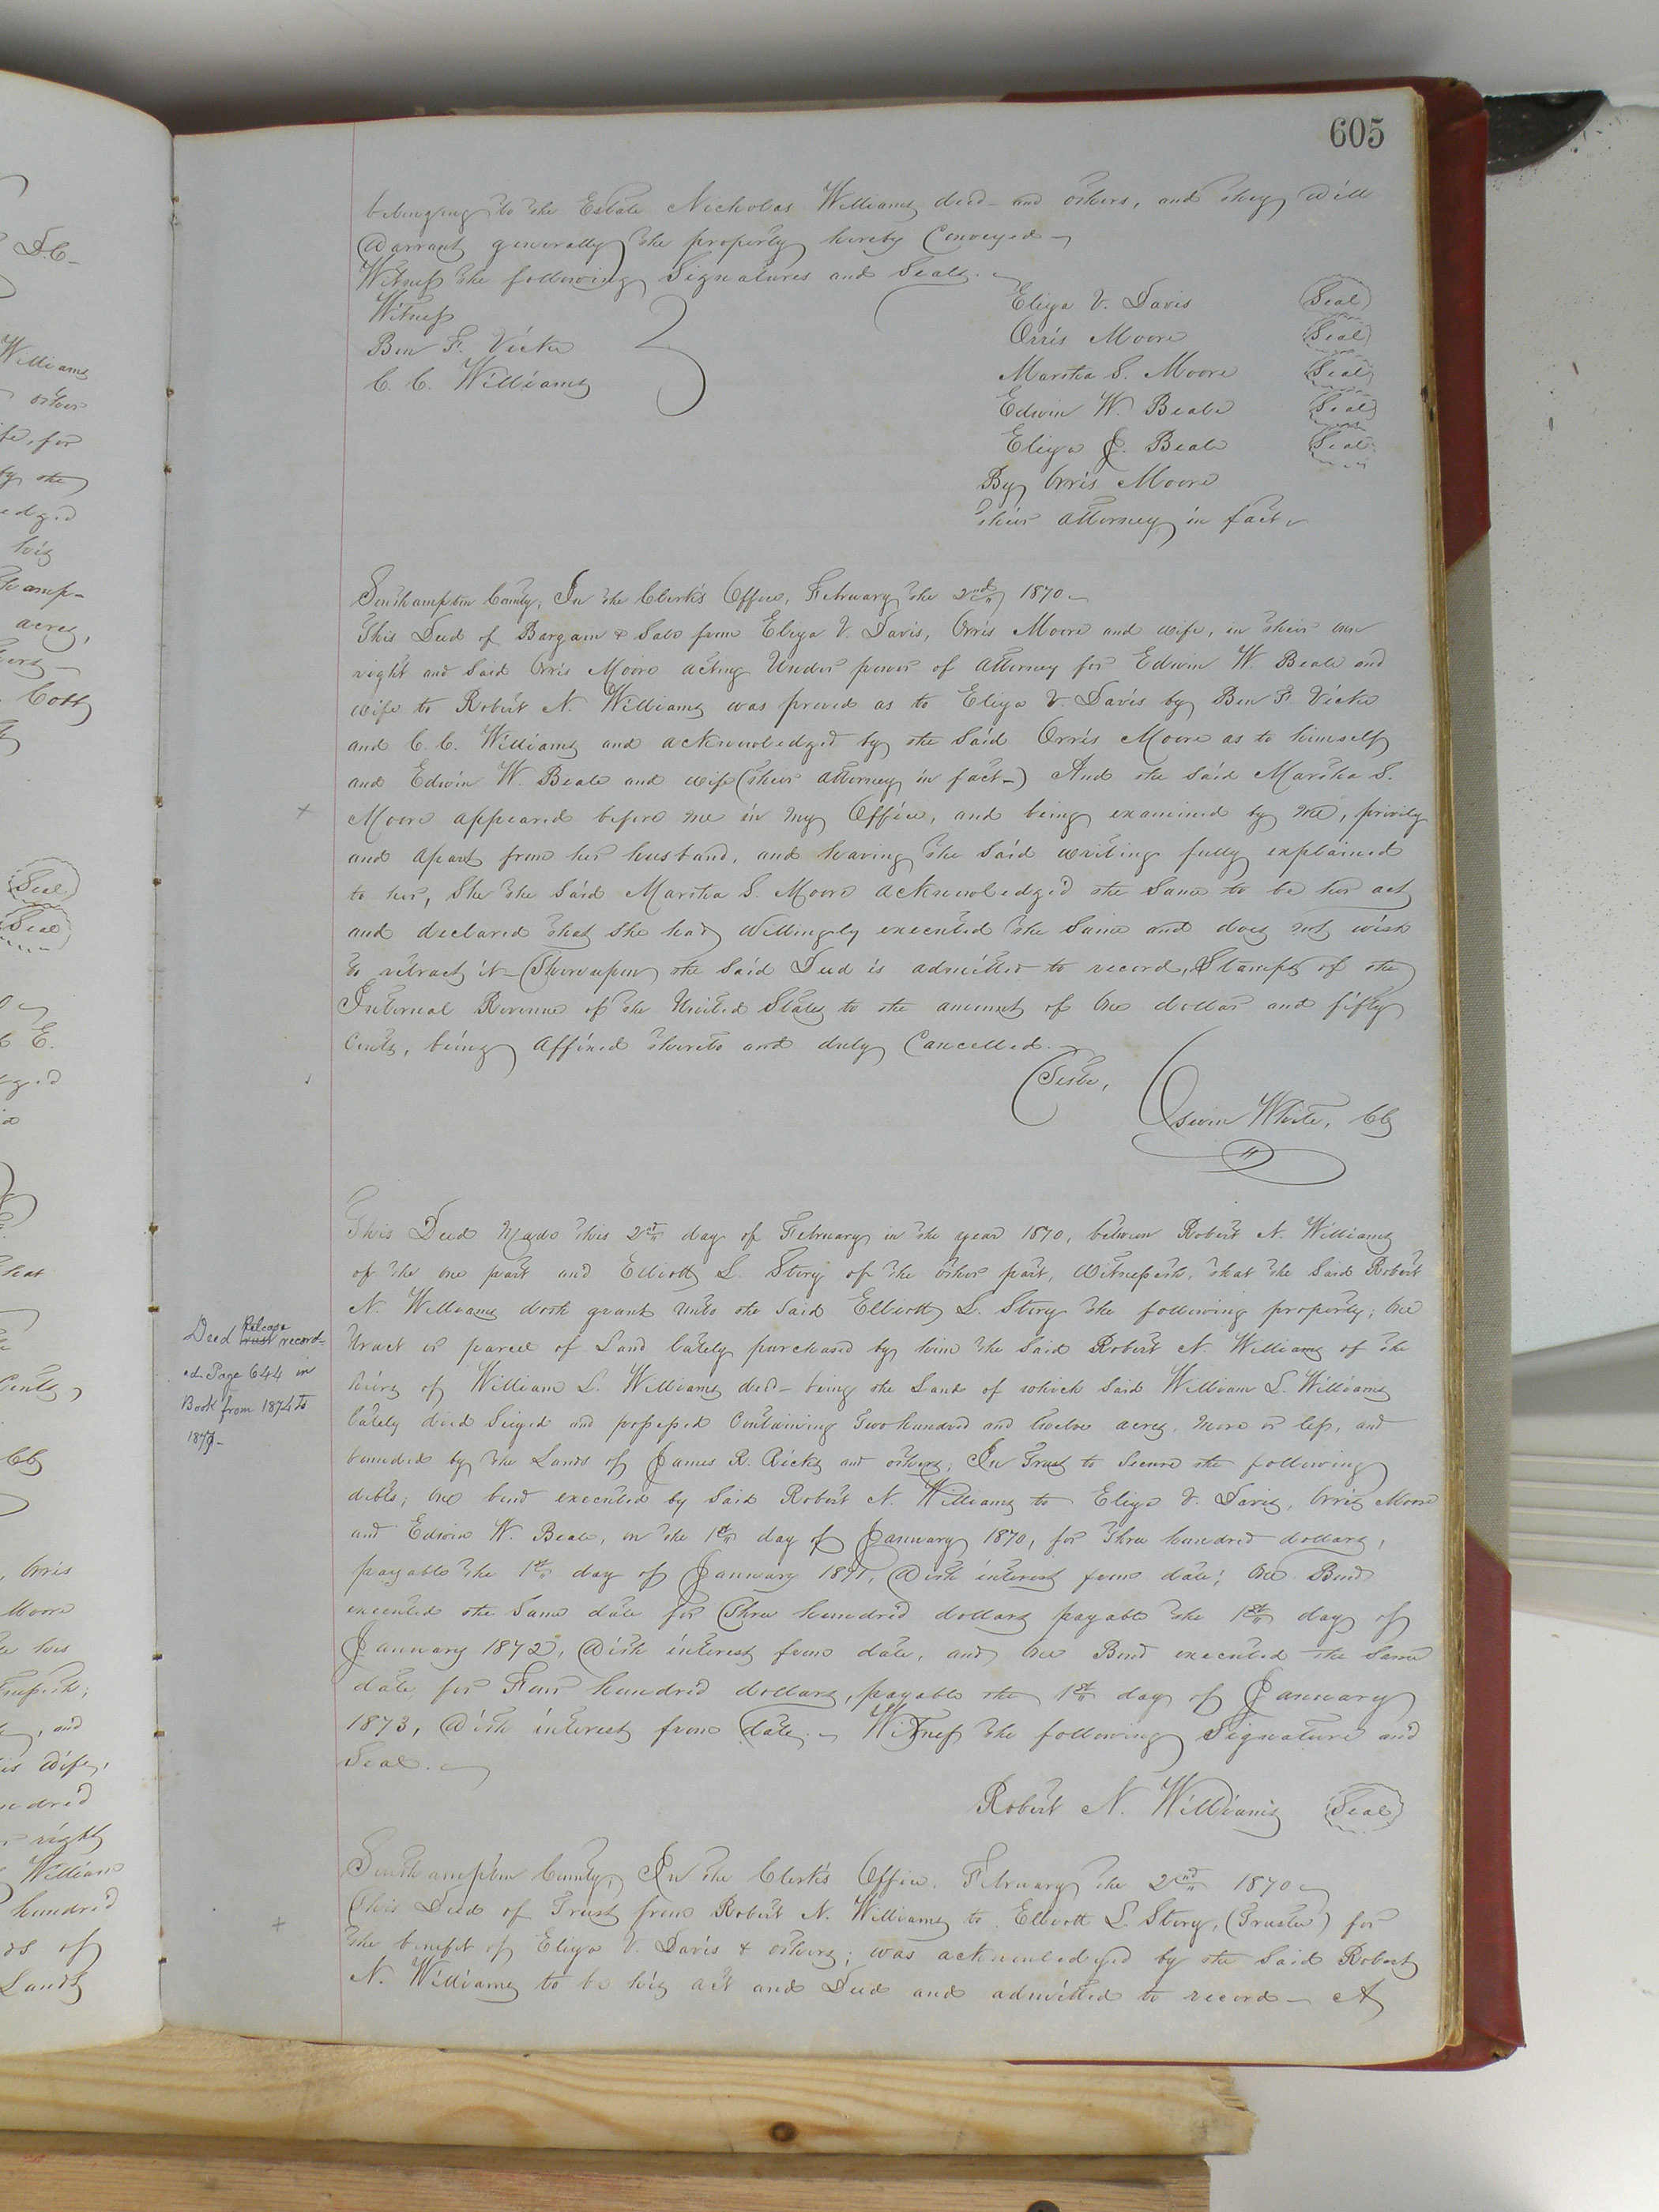 605
belonging to the Estate Nicholas Williams decd- and others, and they will
Warrant generally the property hereby Conveyed-
Witness the following Signatures and Seals.
Witness
Ben F. Vick
C. C. Williams
Eliza V. Davis Seal
Orris Moore Seal
Martha S. Moore Seal
Edwin W. Beale Seal
Eliza J. Beale Seal
By Orris Moore
their attorney in fact
Southampton County, In the Clerk's Office, February the 2nd 1870
This Deed of Bargain & Sale from Eliza V. Davis, Orris Moore and wife, in their own
right and said Orris Moore acting Under power of attorney for Edwin W. Beale and
wife to Robert N. Williams was proved as to Eliza V. Davis by Ben F. Vick
and C. C. Williams and acknowledged by the Said Orris Moore as to himself
and Edwin W. Beale and wife (their attorney in fact-) And the Said Martha S.
Moore appeared before me in my Office, and being examined by me, privily
and apart from her husband, and having the Said writing fully explained
to her, She the Said Martha S. Moore acknowledged the Same to be her act
and declared that She had Willingly executed the Same and does not wish
to retract it- Thereupon the Said Deed is admitted to record, Stamps of the
Internal Revenue of the United States to the amount of One dollar and fifty
Cents, being Affixed thereto and duly Cancelled.
Teste,
Edwin White, Clk
This Deed Made this 2nd day of February in the year 1870, between Robert N. Williams
of the one part and Elliott L. Story of the other part, Witnesseth, that the Said Robert
N. Williams doth grant Unto the Said Elliott L. Story the following property; One
tract or parcel of Land lately purchased by him the Said Robert N. Williams of the
heirs of William L. Williams decd- being the Land of which Said William L. Williams
lately died Seized and possessed Containing Two hundred and twelve acres, more or less, and
bounded by the Lands of James R. Ricks and others; In Trust to Secure the following
debts; One bond executed by Said Robert N. Williams to Eliza V. Davis, Orris Moore
and Edwin W. Beale, on the 1st day of January 1870, for Three hundred dollars,
payable the 1st day of January 1871, With interest from date; One Bond
executed the Same date for Three hundred dollars payable the 1st day of
January 1872, With interest from date, and One Bond executed the Same
date for Four hundred dollars, payable the 1st day of January
1873, With interest from date. Witness the following Signature and
Seal.
Robert N. Williams Seal
Deed Release record-
ed Page 644 in
Book from 1874 to
1877-
Southampton County, In the Clerk's Office, February the 2nd 1870
This Deed of Trust from Robert N. Williams to Elliott L Story, (Trustee) for
the benefit of Eliza V. Davis & others; was acknowledged by the Said Robert
N. Williams to be his act and Deed and admitted to record- A